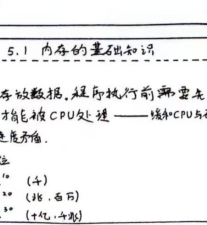 5.1 内存的基础知识
存放数据。程序执行前需要先
才能被CPU处理 —— 缓和CPU与
速度矛盾.
位
10 (千)
20 (兆, 百万)
30 (十亿, 千兆)